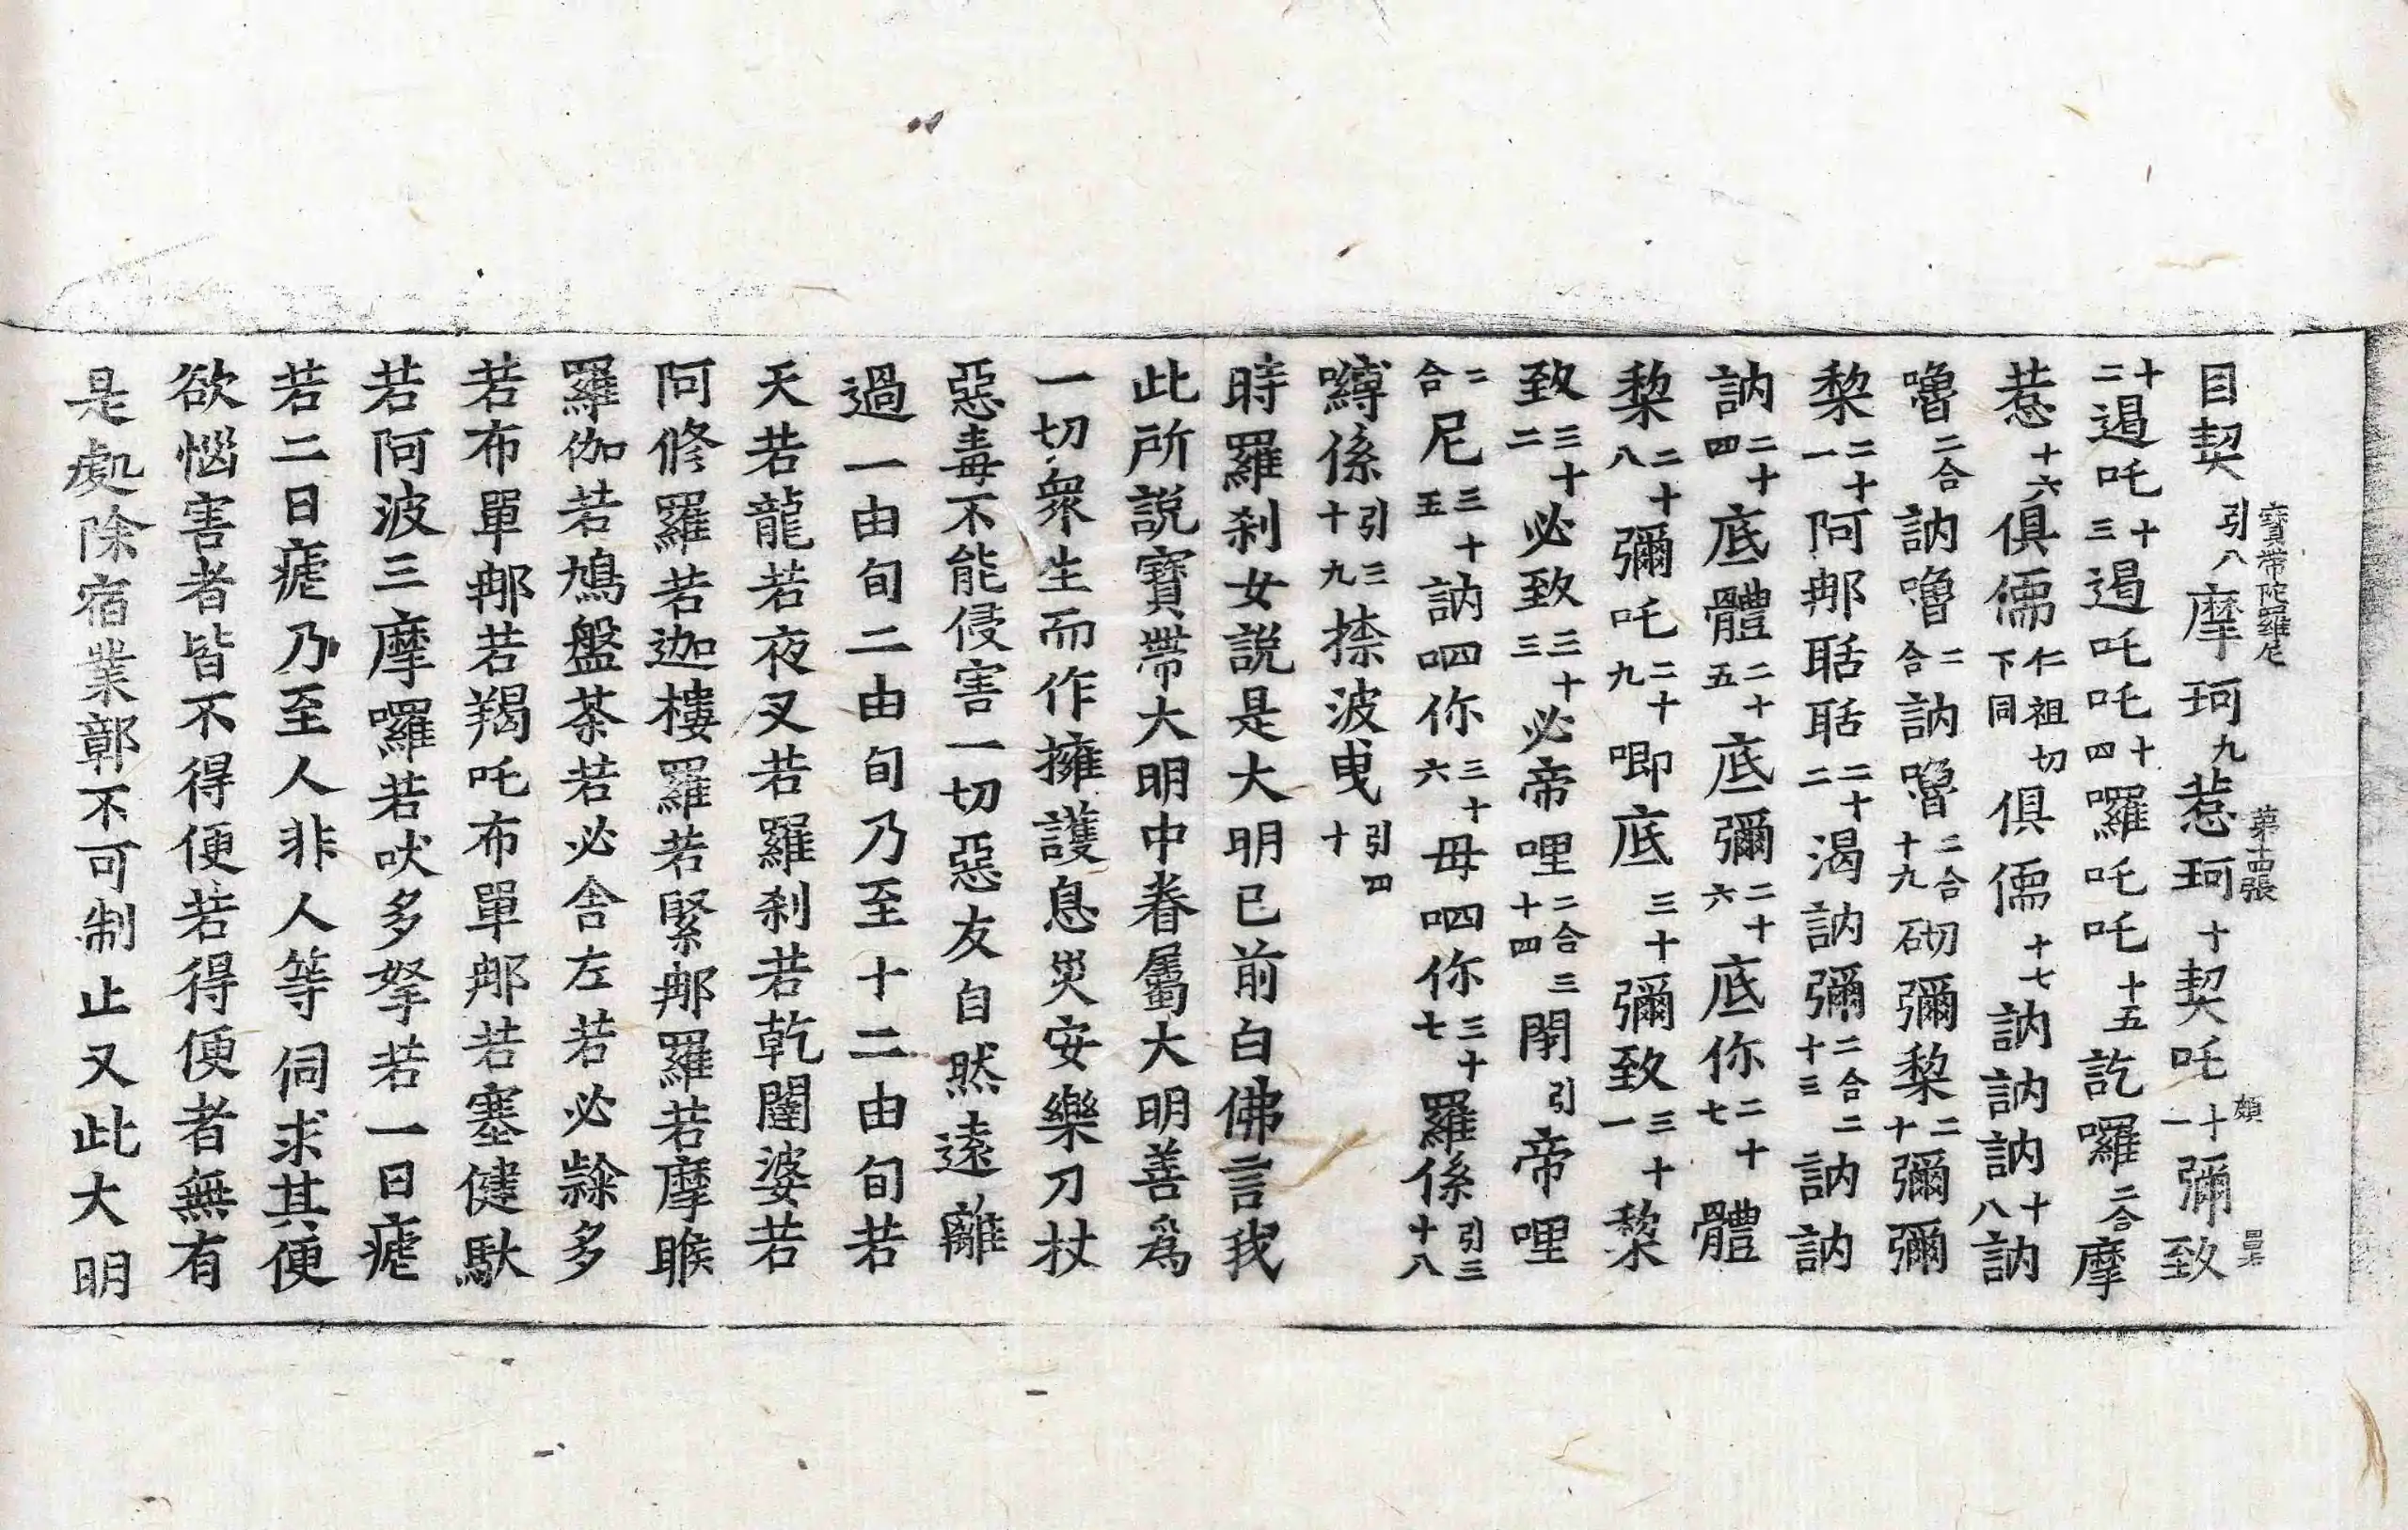 寶帶陀羅尼 第十四張 頗
目契引八摩珂九惹珂十契吒十一彌致
十二遏吒十三遏吒吒十四囉吒吒十五訖囉二合摩
惹十六俱儒仁祖切下同俱儒十七訥訥訥十八訥
嚕二合訥嚕二合訥嚕二合十九砌彌黎二十彌彌
黎二十一阿那聒聒二十二渴訥彌二合二十三訥訥
訥二十四底體二十五底彌二十六底你二十七體
黎二十八彌吒二十九唧底三十彌致三十一黎
致三十二必致三十三必帝哩二合三十四閇引帝哩
二合尼三十五訥呬你三十六毋呬你三十七羅係引三十八
嚩係引三十九捺波曳引四十
時羅刹女說是大明已前白佛言我
此所說寶帶大明中眷屬大明善爲
一切衆生而作擁護息災安樂刀杖
惡毒不能侵害一切惡友自然遠離
過一由旬二由旬乃至十二由旬若
天若龍若夜叉若羅刹若乾闥婆若
阿修羅若迦樓羅若緊那羅若摩睺
羅伽若鳩盤茶若必舍左若必隸多
若布單那若羯吒布單那若塞健馱
若阿波三摩囉若吠多拏若一日瘧
若二日瘧乃至人非人等伺求其便
欲惱害者皆不得便若得便者無有
是處除宿業鄣不可制止又此大明